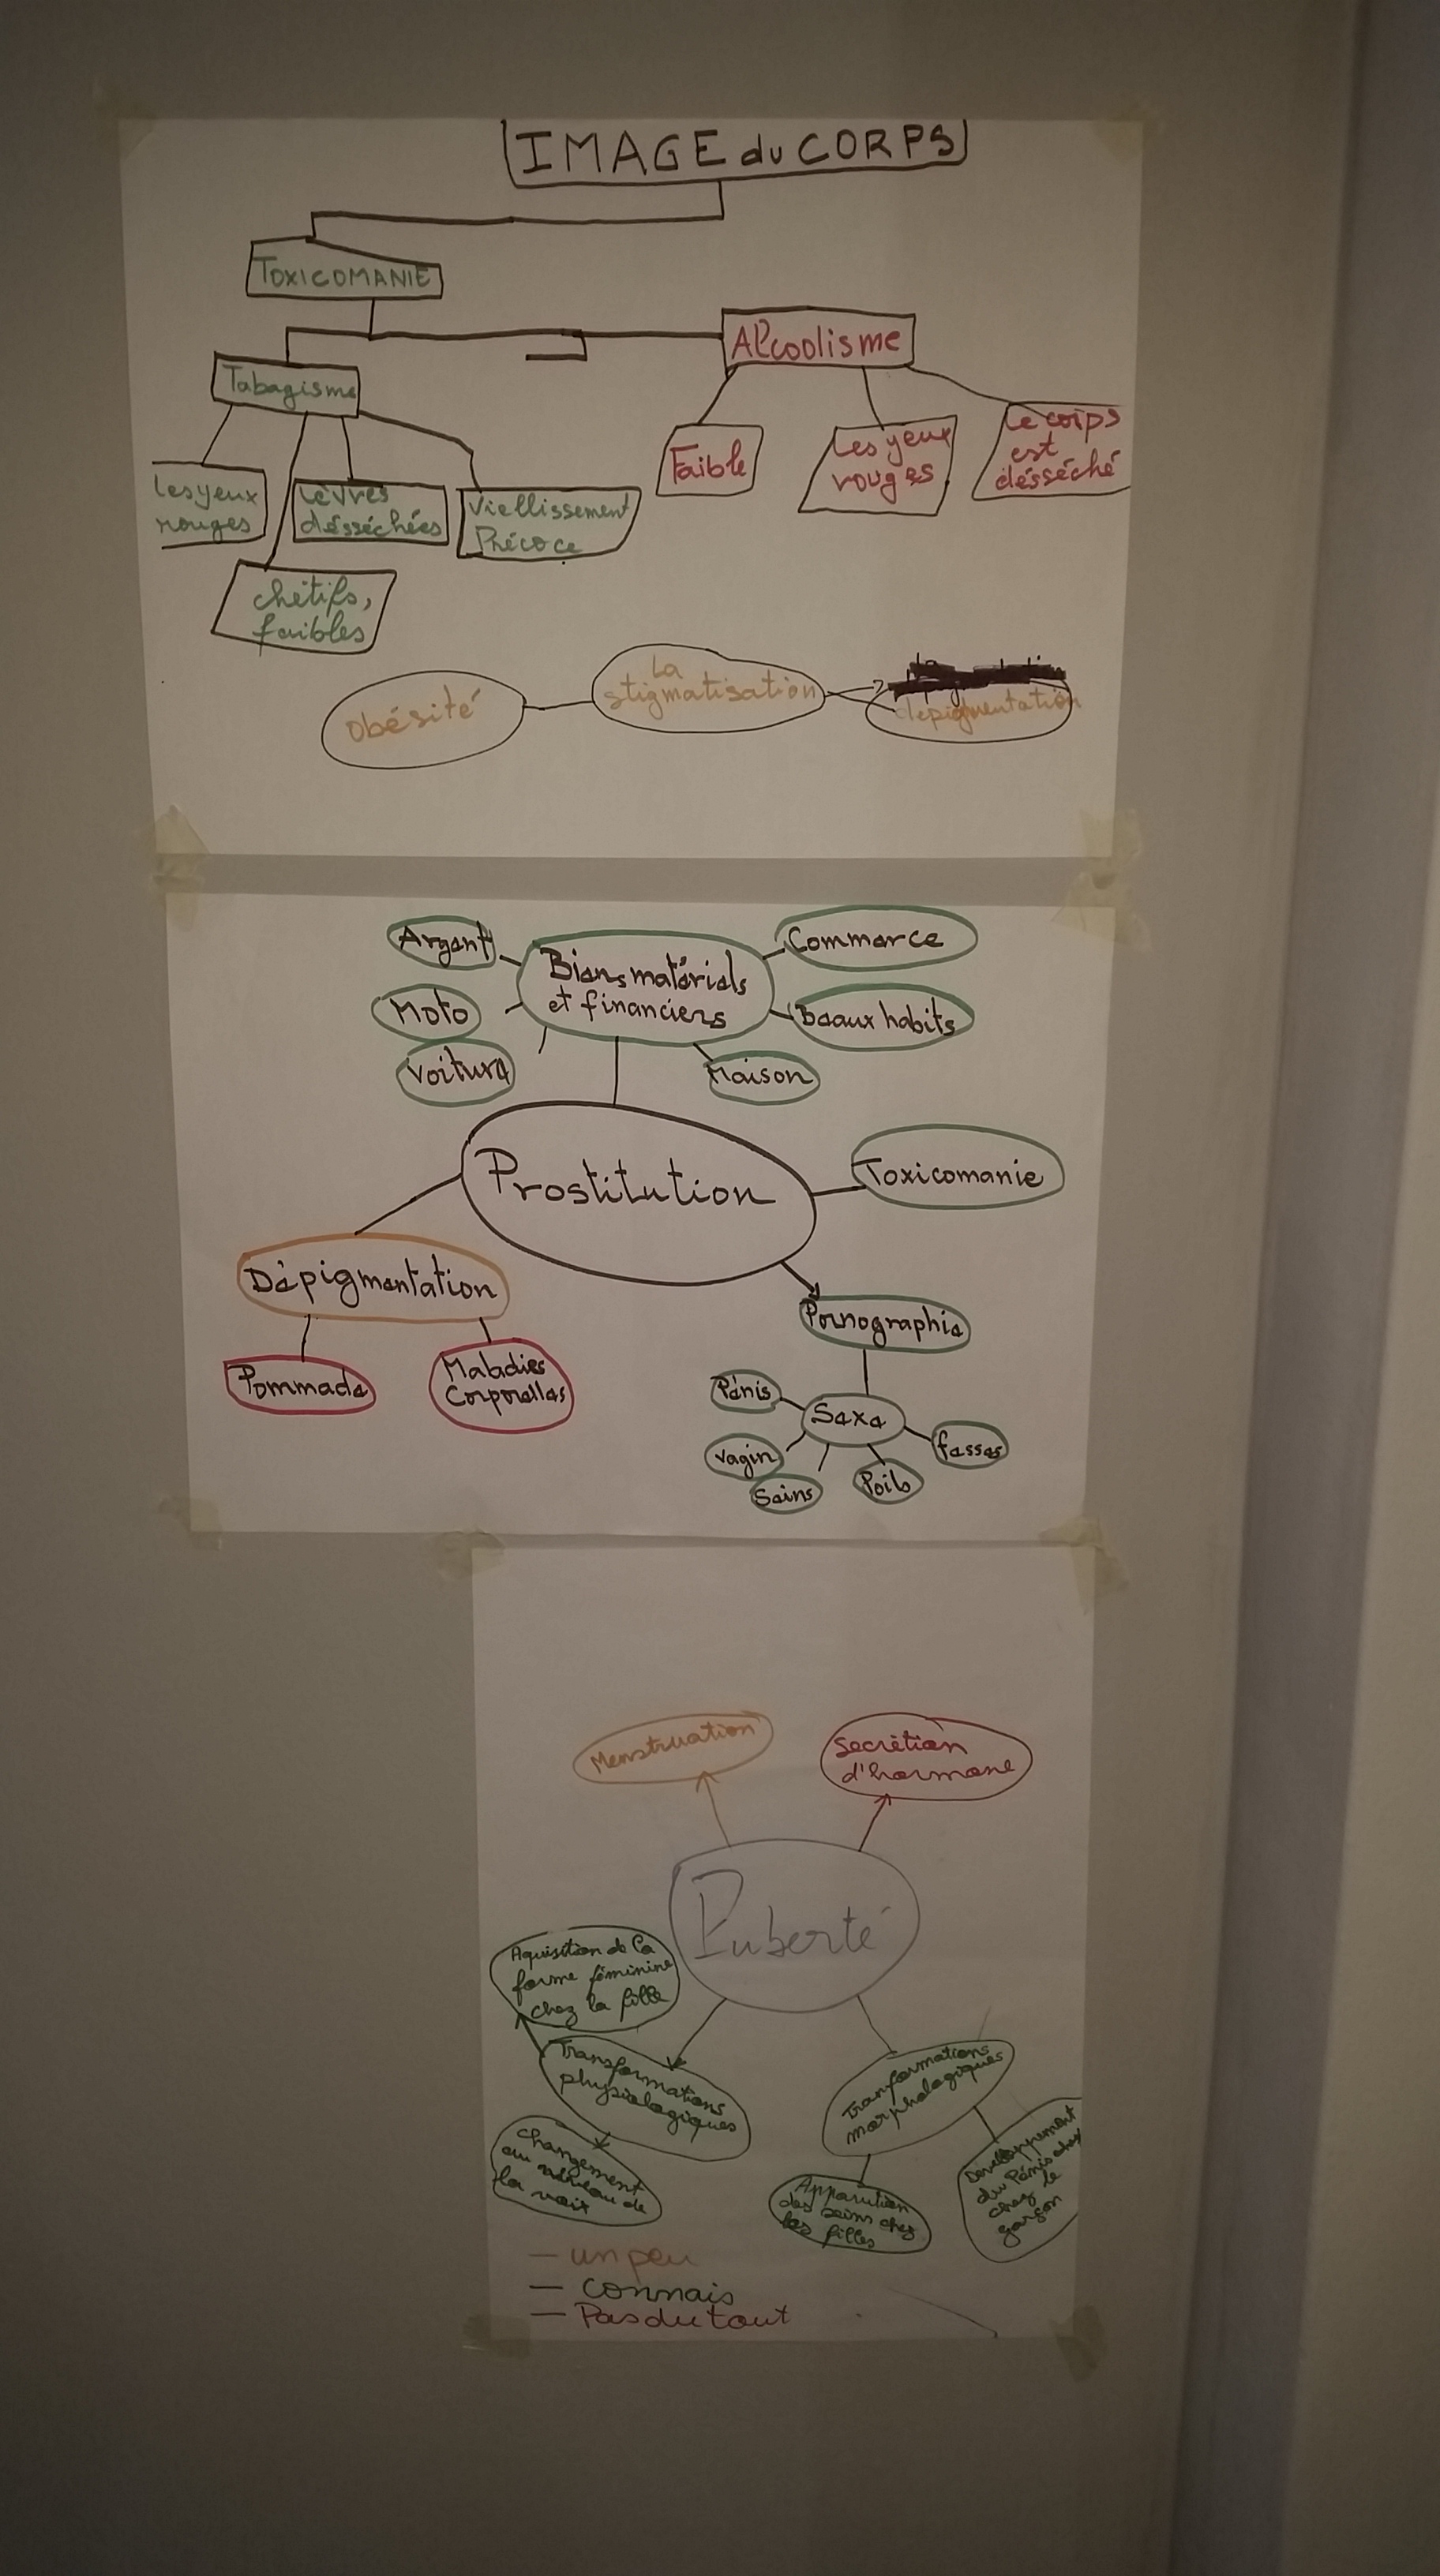 IMAGE du CORPS
TOXICOMANIE
Alcoolisme
Tabagisme
Faible
Les yeux
rouges
Le corps
est
désséché
les yeux
rouges
Lèvres
désséchées
Viellissement
Précoce
chétifs,
faibles
Obésité
La
stigmatisation
dépigmentation
Argent
Biens matériels
et financiers
Commerce
Moto
Beaux habits
Voiture
Maison
Prostitution
Toxicomanie
Dépigmentation
Pommade
Maladies
Corporelles
Pornographie
Pénis
Sexe
fesses
vagin
Seins
Poils
Menstruation
Secrétion
d'hormone
Puberté
Aquisition de la
forme féminine
chez la fille
Transformations
physiologiques
Changement
au niveau de
la voix
Tranformations
morphologiques
Apparution
des seins chez
les filles
Developpement
du Pénis chez
chez le
garçon
— un peu
— connais
— Pas du tout